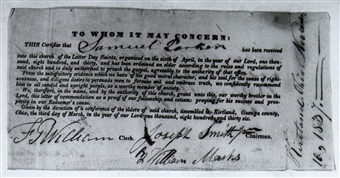 TO WHOM IT MAY CONCERN:
THIS Certifies that Samuel has been received
into this church of the Latter Day Saints, organized on the sixth of April, in the year of our Lord, one thou-
sand, eight hundred, and thirty, and has been ordained an elder according to the rules and regulations of
said church and is duly authorized to preach the gospel, agreeably to the authority of that office.
From the satisfactory evidence which we have of his good moral character, and his zeal for the cause of right-
eousness, and diligent desire to persuade men to forsake evil and embrace truth, we confidently recommend
him to all candid and upright people, as a worthy member of society.
We, therefore, in the name, and by the authority of this church, grant unto this, our worthy brother in the
Lord, this letter of commendation as a proof of our fellowship and esteem: praying for his success and pros-
perity in our Redeemer's cause.
Given by the direction of a conference of the elders of said church, assembled in Kirtland, Geauga county,
Ohio, the third day of March, in the year of our Lord one thousand, eight hundred and thirty six.
F. G. William Clerk. Joseph Smith Jr. Chairman.
William Marks
Kirtland
1837